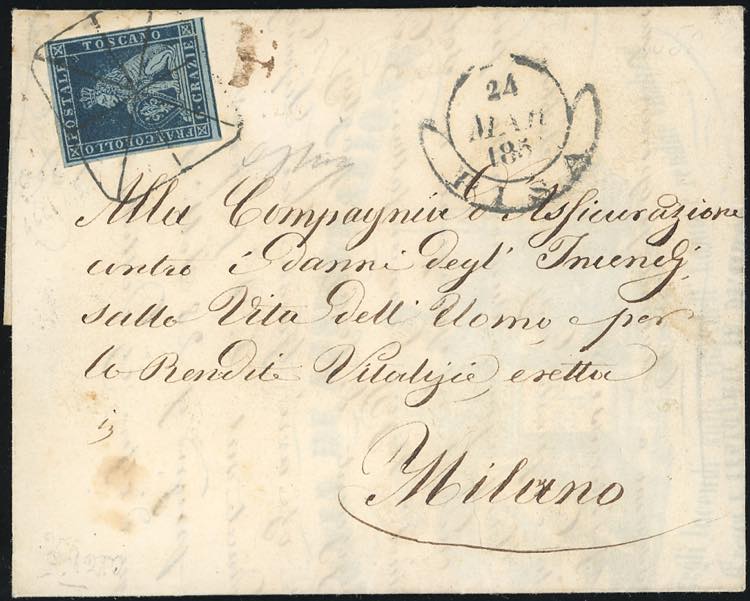 FRANCOBOLLO POSTALE TOSCANO 6 CRAZIE
24
MAR
185
PISA
Alla Compagnia d'Assicurazione
contro i danni degl' Incendj
sulla Vita dell' Uomo, e per
le Rendite Vitalizie, eretta
in
Milano